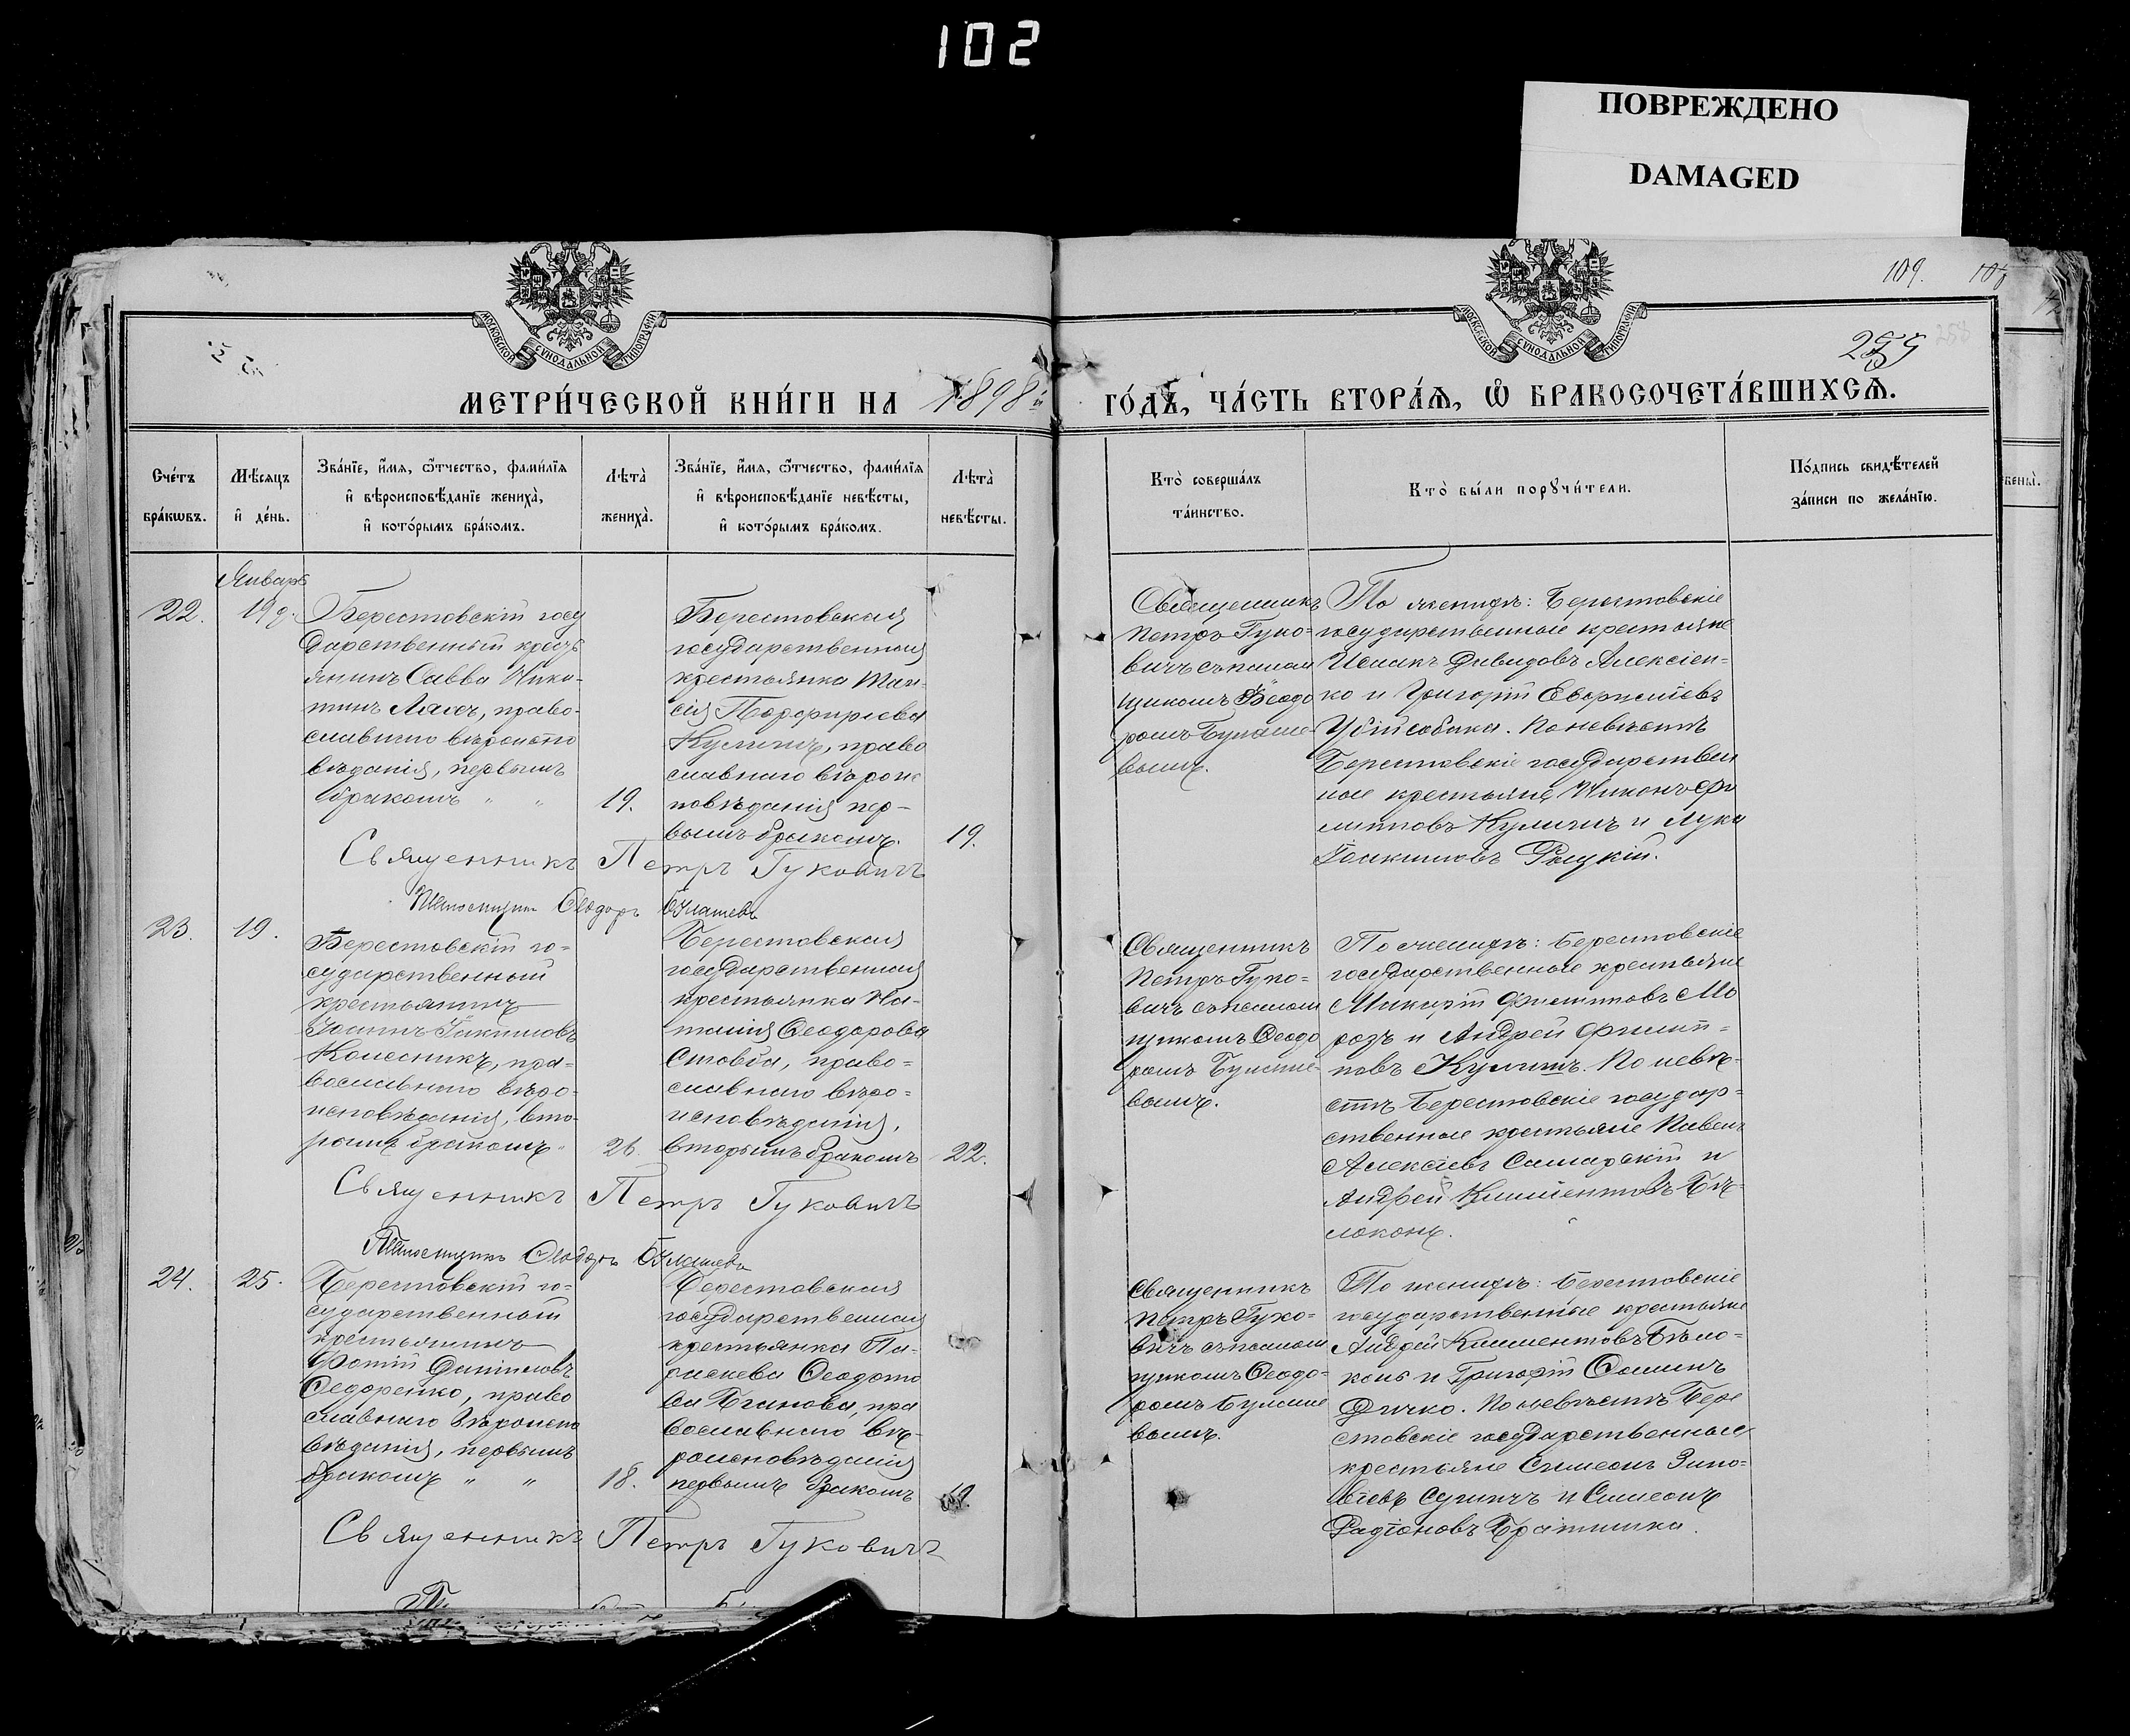 102
ПОВРЕЖДЕНО
DAMAGED
109.
МОСКОВСКОЙ СѴНОДАЛЬНОЙ ТИПОГРАФІИ
МОСКОВСКОЙ СѴНОДАЛЬНОЙ ТИПОГРАФІИ
МЕТРИ́ЧЕСКОЙ КНИ́ГИ НА 1898й ГО́ДЪ, ЧА́СТЬ ВТОРА́Ѧ, Ѽ БРАКОСОЧЕТА́ВШИХСѦ.
Сче́тъ бра́кѡвъ.
Мѣ́сяцъ и҆ де́нь.
Зва́нїе, и҆́мя, ѻ҆́тчество, фами́лїя
и҆ вѣроисповѣ́данїе жениха̀,
и҆ кото́рымъ бра́комъ.
Лѣта̀ жениха̀.
Зва́нїе, и҆́мя, ѻ҆́тчество, фами́лїя
и҆ вѣроисповѣ́данїе невѣ́сты,
и҆ кото́рымъ бра́комъ.
Лѣта̀ невѣ́сты.
Кто̀ соверша́лъ
та́инство.
Кто̀ бы́ли порꙋчи́тели.
По́дпись свидѣ́телей
за́писи по жела́нїю.
Январь
22.
19
Берестовскій госу
дарственный кресть
янинъ Савва Ники-
тинъ Лялец, право-
славнаго вѣроиспо
вѣданія, первымъ
бракомъ " "
19.
Берестовская
государственная
крестьянка Таи-
сія Порфиріева
Кулишъ, право
славнаго вѣрои
повѣданія пер-
вымъ бракомъ.
19.
Священникъ
Петръ Гуко-
вичъ съ псалом
щикомъ Ѳеодо
ромъ Булаше-
вымъ.
По женихѣ: Берестовскіе
государственные крестьяне
Исаакъ Давидовъ Алексіен-
ко и Григорій Евстафіевъ
Убійсобака. По невѣстѣ
Берестовскіе государствен
ные крестьяне, Никонъ Фи
липповъ Кулишъ и Лука
Іоакимовъ Рецкій.
Священникъ Петръ Гуковичъ
Псаломщикъ Ѳеодоръ Булашевъ
23.
19.
Берестовскій го-
сударственный
крестьянинъ
Іоаннъ Іакимовъ
Колесникъ, пра-
вославнаго вѣро-
исповѣданія, вто-
рымъ бракомъ "
26.
Берестовская
государственная
крестьянка На-
талія Ѳеодорова
Стовба, право-
славнаго вѣро-
исповѣданія,
вторымъ бракомъ
22.
Священникъ
Петръ Гуко-
вичъ съ псалом
щикомъ Ѳеодо
ромъ Булаше-
вымъ.
По женихѣ: Берестовскіе
государственные крестьяне
Макарій Филипповъ Мо
розъ и Андрей Филип-
повъ Кулишъ. По невѣ-
стѣ Берестовскіе государ-
ственные крестьяне Павелъ
Алексіевъ Самарскій и
Андрей Климентовъ Бѣ-
локонь.
Священникъ Петръ Гуковичъ
Псаломщикъ Ѳеодоръ Булашевъ
24.
25.
Берестовскій го-
сударственный
крестьянинъ
Фотій Даниловъ
Ѳедоренко, право
славнаго вѣроиспо
вѣданія, первымъ
бракомъ " "
18.
Берестовская
государственная
крестьянка Па-
раскева Ѳеодото
ва Буланова, пра
вославнаго вѣ-
роисповѣданія
первымъ бракомъ
Священникъ
Петръ Гуко-
вичъ съ псалом
щикомъ Ѳеодо-
ромъ Булаше
вымъ.
По женихѣ: Берестовскіе
государственные крестьяне
Андрей Климентовъ Бѣло-
конь и Григорій Ѳоминъ
Дичко. По невѣстѣ Бере
стовскіе государственные
крестьяне Симеонъ Зино-
віевъ Сушичъ и Симеонъ
Радіоновъ Братишка.
Священникъ Петръ Гуковичъ